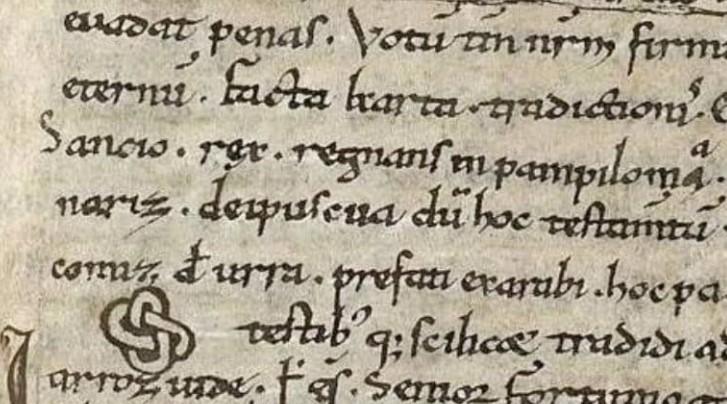 euadat penas. Votū tm̄ nr̄m firmu
eternū. facta karta. tradictionis.
Sancio. rex. regnans in pampilonia.
nariz. deipuscua dū hoc testamtū
comiz, đ urra. prefati exarabi. hoc pa
testib; q; scilicet tradidi ad
garroz uide. Semor fortunio